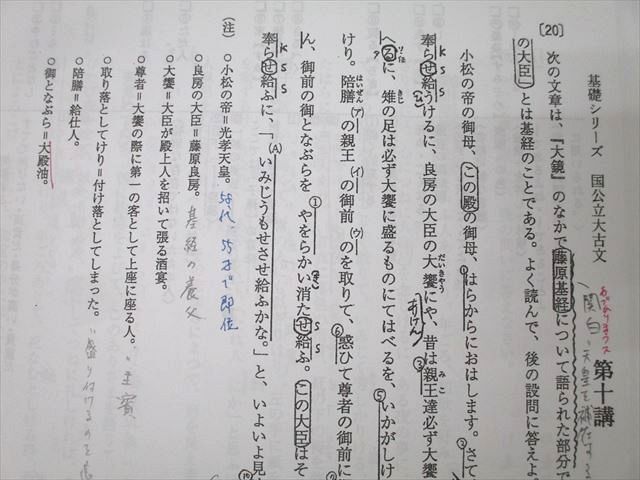 基礎シリーズ 国公立大古文
第十講
〔20〕 次の文章は、『大鏡』のなかで藤原基経について語られた部分で
の大臣」とは基経のことである。よく読んで、後の設問に答えよ。
小松の帝の御母、この殿の御母、はらからにおはします。さて
奉らせ給うけるに、良房の大臣の大饗にや、昔は親王達必ず大饗
へるに、雉の足は必ず大饗に盛るものにてはべるを、いかがしけ
けり。陪膳(ア)の親王(イ)の御前(ウ)のを取りて、惑ひて尊者の御前に
ん、御前の御となぶらを①やをらかい消たせ給ふ。この大臣はそ
奉らせ給ふに、「(A)いみじうもせさせ給ふかな。」と、いよいよ見
(注)○小松の帝=光孝天皇。 58代、55才で即位
○良房の大臣=藤原良房。 基経の養父
○大饗=大臣が殿上人を招いて張る酒宴。
○尊者=大饗の際に第一の客として上座に座る人。 主賓
○取り落としてけり=付け落としてしまった。
○陪膳=給仕人。
○御となぶら=大殿油。